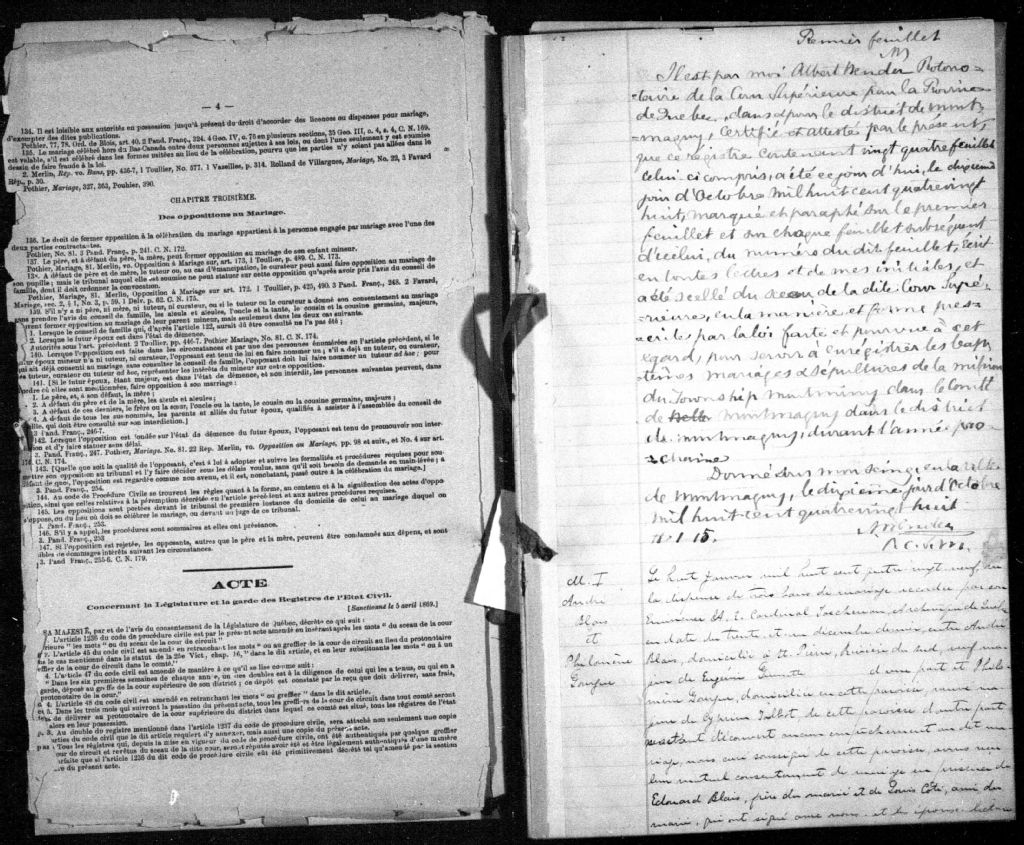 — 4 —
134. Il est loisible aux autorités en possession jusqu'à présent du droit d'accorder des licences ou dispenses pour mariage,
d'exempter des dites publications.
Pothier, 77, 78. Ord. de Blois, art. 40. 2 Pand. Franç., 324. 4 Geo. IV, c. 75 en plusieurs sections, 35 Geo. III, c. 4, s. 4, C. N. 169.
135. Le mariage célébré hors du Bas Canada entre deux personnes sujettes à ses lois, ou dont l'une seulement y est soumise
est valable, s'il est célébré dans les formes usitées au lieu de la célébration, pourvu que les parties n'y soient pas allées dans le
dessin de faire fraude à la loi.
2. Merlin, Rép. vo. Bans, pp. 436-7, 1 Toullier, No. 577. 1 Vazeilles, p. 314. Rolland de Villargues, Mariage, No. 29, 3 Favard
Rép., p. 30.
Pothier, Mariage, 327, 363, Pouhier, 390.
CHAPITRE TROISIÈME.
Des oppositions au Mariage.
136. Le droit de former opposition à la célébration du mariage appartient à la personne engagée par mariage avec l'une des
deux parties contractantes.
Pothier, No. 81. 3 Pand. Franç., p. 241. C. N. 172.
137. Le père, et à défaut du père, la mère, peut former opposition au mariage de son enfant mineur.
Pothier, Mariage, 81. Merlin, vo. Opposition à Mariage, sur art. 173, 1 Toullier, p. 489. C. N. 173.
138. A défaut de père et de mère, le tuteur ou, au cas d'émancipation, le curateur peut aussi faire opposition au mariage de
son pupille; mais le tribunal auquel elle est soumise ne peut statuer sur cette opposition qu'après avoir pris l'avis du conseil de
famille, dont il doit ordonner la convocation.
Pothier, Mariage, 81. Merlin, Opposition à Mariage sur art. 172. 1 Toullier, p. 425, 490. 3 Pand. Franç., 248. 2 Favard,
Mariage, sec. 2, § 1, No. 3, p. 39, 1 Delv. p. 62. C. N. 175.
139. S'il n'y a ni père, ni mère, ni tuteur, ni curateur, ou si le tuteur ou le curateur a donné son consentement au mariage
sans prendre l'avis du conseil de famille, les aïeuls et aïeules, l'oncle et la tante, le cousin et la cousine germains, majeurs,
peuvent former opposition au mariage de leur parent mineur, mais seulement dans les deux cas suivants.
1. Lorsque le conseil de famille qui, d'après l'article 122, aurait dû être consulté ne l'a pas été;
2. Lorsque le futur époux est dans l'état de démence.
Autorités sous l'art. précédent. 2 Toullier, pp. 446-7. Pothier Mariage, No. 81. C. N. 174.
140. Lorsque l'opposition est faite dans les circonstances et par une des personnes énumérées en l'article précédent, si le
futur époux mineur n'a ni tuteur, ni curateur, l'opposant est tenu de lui en faire nommer un; s'il a déjà un tuteur, ou curateur,
qui ait déjà consenti au mariage sans consulter le conseil de famille, l'opposant doit lui faire nommer un tuteur ad hoc; pour
les tuteur, curateur ou tuteur ad hoc, représenter les intérêts du mineur sur cette opposition.
141. [Si le futur époux, étant majeur, est dans l'état de démence, et son interdit, les personnes suivantes peuvent, dans
l'ordre où elles sont mentionnées, faire opposition à son mariage:
1. Le père, et, à son défaut, la mère;
2. A défaut du père et de la mère, les aïeuls et aïeules;
3. A défaut de ces derniers, le frère ou la sœur, l'oncle ou la tante, le cousin ou la cousine germains, majeurs;
4. A défaut de tous les sus-nommés, les parents et alliés du futur époux, qualifiés à assister à l'assemblée du conseil de
famille, qui doit être consulté sur son interdiction.]
3 Pand. Franç. 246-7.
142. Lorsque l'opposition est fondée sur l'état de démence du futur époux, l'opposant est tenu de promouvoir son inter-
diction et d'y faire statuer sans délai.
3. Pand. Franç. 247. Pothier, Mariage, No. 81. 22 Rep. Merlin, vo. Opposition au Mariage, pp. 98 et suiv., et No. 4 sur art.
174 C. N. 174.
143. [Quelle que soit la qualité de l'opposant, c'est à lui à adopter et suivre les formalités et procédures requises pour sou-
mettre son opposition au tribunal et l'y faire décider sous les délais voulus, sans qu'il soit besoin de demande en main-levée; à
défaut de quoi, l'opposition est regardée comme non avenu, et il est, nonobstant, passé outre à la célébration du mariage.]
3. Pand. Franç., 254.
144. Au code de Procédure Civile se trouvent les règles quant à la forme, au contenu et à la signification des actes d'oppo-
sition, ainsi que celles relatives à la péremption décrétée en l'article précédent et aux autres procédures requises.
145. Les oppositions sont portées devant le tribunal de première instance du domicile de celui au mariage duquel on
s'oppose, ou du lieu où doit se célébrer le mariage, ou devant un juge de ce tribunal.
3. Pand. Franç., 253.
146. S'il y a appel, les procédures sont sommaires et elles ont préséance.
3. Pand. Franç., 253
147. Si l'opposition est rejetée, les opposants, autres que le père et la mère, peuvent être condamnés aux dépens, et sont
passibles de dommages intérêts suivant les circonstances.
3. Pand. Franç., 255-6. C. N. 179.
ACTE
Concernant la Législature et la garde des Registres de l'État Civil.
[Sanctionné le 5 avril 1869.]
SA MAJESTÉ, par et de l'avis du consentement de la Législature de Québec, décrète ce qui suit:
1. L'article 1236 du code de procédure civile est par le présent acte amendé en insérant après les mots " du sceau de la cour
supérieure " les mots " ou du sceau de la cour de circuit "
2. L'article 45 du code civil est amendé en retranchant les mots " ou au greffier de la cour de circuit au lieu du protonotaire
dans le cas mentionné dans le statut de la 25e Vict., chap. 16, " dans le dit article, et en leur substituants les mots " ou à un
greffier de la cour de circuit dans le comté."
4. L'article 47 du code civil est amendé de manière à ce qu'il se lise comme suit:
" Dans les six premières semaines de chaque année, un des doubles est à la diligence de celui qui les a tenus, ou qui en a
garde, déposé au greffe de la cour supérieure de son district; ce dépôt est constaté par le reçu que doit délivrer, sans frais,
protonotaire de la cour."
4. L'article 48 du code civil est amendé en retranchant les mots " ou greffier " dans le dit article.
5. Dans les trois mois qui suivront la passation du présent acte, tous les greffiers de la cour de circuit dans tout comté seront
tenus de délivrer au protonotaire de la cour supérieure du district dans lequel ce comté est situé, tous les registres de l'état
alors en leur possession.
3. Au double du registre mentionné dans l'article 1237 du code de procédure civile, sera attaché non seulement une copie
articles du code civil que le dit article requiert d'y annexer, mais aussi une copie du présent acte.
Tous les registres qui, depuis la mise en vigueur du code de procédure civile, ont été authentiqués par quelque greffier
cour de circuit et revêtus du sceau de la dite cour, seront réputés avoir été et être légalement authentiqués d'une manière
parfaite que si l'article 1236 du dit code de procédure civile eût été primitivement décrété tel qu'amendé par la section
du présent acte.
Premier feuillet
Il est par moi Albert Bender Protono=
=taire de la Cour Supérieure pour la Province
de Québec, dans & pour le district de Mont
=magny, Certifié et attesté par le présent,
que ce registre contenant vingt quatre feuillets
celui-ci compris, a été ce jour d'hui, le dixième
jour d'Octobre Mil huit cent quatre vingt
huit, marqué et paraphé sur le premier
feuillet et sur chaque feuillet subséquent
d'icelui, du numéro du dit feuillet, écrit
en toutes lettres et de mes initiales, et
a été scellé du sceau de la dite Cour Supé=
=rieure, en la manière, et forme pres=
=crites par la loi faite et pourvue à cet
égard, pour servir à enregistrer les bap=
têmes mariages & sépultures de la mission
du Township Montminy dans le Comté
de Montmagny dans le district
de Montmagny, durant l'année pro=
=chaine
Donné sous mon seing en la ville
de Montmagny, le dixième jour d'Octobre
Mil huit cent quatre vingt huit
A Bender
P. C. S. M.
M. I
André
Blais
et
Philomène
Gonque
Le huit Janvier mil huit cent quatre vingt neuf, vu
la dispense de trois bans de mariage accordée par son
Eminence H. E. Cardinal Taschereau, Archevêque de Québec
en date du trente et un décembre dernier, entre André
Blais, domicilié à St. Pierre, Rivière du Sud, veuf ma-
jeur de d'une part et Philo-
mène domiciliée en cette paroisse, veuve ma
jeure de Cyprien Talbot, de cette paroisse d'autre part
ne s'étant découvert aucun empêchement au dit ma-
riage, nous curé soussigné de cette paroisse, avons reçu
leur mutuel consentement de mariage en présence de
Edouard Blais, père du marié et de Louis Côté, ami du
marié, qui ont signé avec nous et les époux